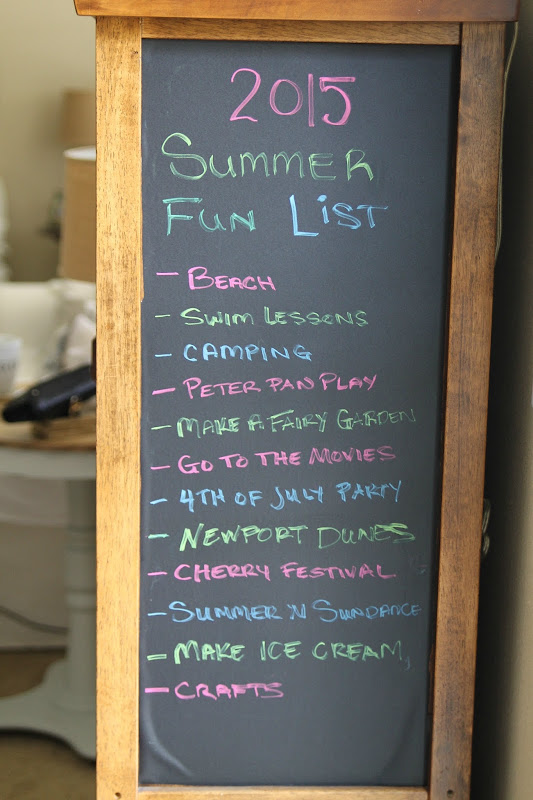 2015
SUMMER
FUN LIST
- BEACH
- SWIM LESSONS
- CAMPING
- PETER PAN PLAY
- MAKE A FAIRY GARDEN
- GO TO THE MOVIES
- 4TH OF JULY PARTY
- NEWPORT DUNES
- CHERRY FESTIVAL
- SUMMER N SUNDANCE
- MAKE ICE CREAM,
- CRAFTS